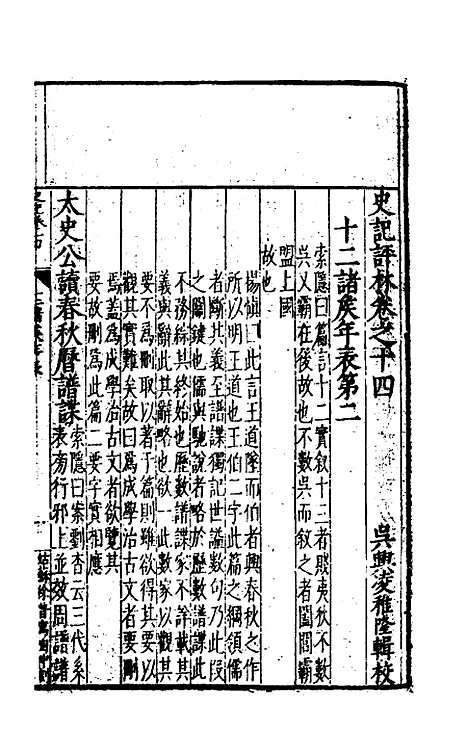 史記評林卷之十四
吳興凌稚隆輯校
十二諸侯年表第二
索隱曰篇言十二實叙十三者賤夷狄不數
吳又霸在後故也不數吳而叙之者闔閭霸
盟上國
故也
楊慎曰此言王道隆而伯者興春秋之作
所以明王道也王伯二字此篇之綱領儒
者斷其義至譜諜獨記世謚數句乃此叚
之關鍵也儒與馳說者略於歷數譜諜此
不務綜其終始也歷數譜諜家不詳載其
義與辭此其辭略也欲一此數家以觀其
要不爲刪取以著于篇則難欲得其要以
觀其實難矣故曰爲成學治古文者要刪
焉蓋爲成學治古文者欲覽其
要故刪爲此篇二要字實相應
太史公讀春秋曆譜諜
索隱曰案劉杳云三代系
表旁行邪上並效周譜譜